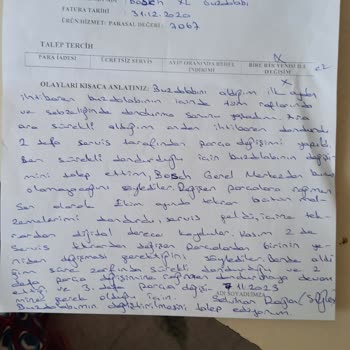 Bosch XL Buzdolabı
FATURA TARİHİ : 31.12.2020
ÜRÜN/HİZMET: PARASAL DEĞERİ: 7067
TALEP TERCİH
X
PARA İADESİ ÜCRETSİZ SERVİS AYIP ORANINDA BEDEL İNDİRİMİ BİRE BİR YENİSİ İLE DEĞİŞİM
X
OLAYLARI KISACA ANLATINIZ: Buzdolabını aldığım ilk aydan
itibaren buzdolabının içinde tüm raflarında
ve sebzeliğinde dondurma sorunu yaşadım. Ana
ara sürekli aldığım andan itibaren dondurdu
2 defa servis tarafından parça değişimi yapıldı
Ben sürekli dondurduğu için buzdolabının değişi-
mini talep ettim, Bosch Genel Merkezden bunun
olamayacağını söylediler. Değişen parçalara rağmen
Son olarak Ekim ayında tekrar bütün mal-
zemelerimi dondurdu, servis geldi, içine tek-
rardan dijital derece koydular. Kasım 2 de
Servis tekrardan değişen parçalardan birinin ye-
niden değişmesi gerektiğini söylediler. Bende aldı-
ğım süre zarfında sürekli dondurduğu ve 2
defa parça değişimine rağmen dondurmaya devam
ettiği ve 3. defa parça değişi- 7.11.2023
mine gerek olduğu için. ADI SOYADI/İMZA
Buzdolabımın değiştirilmesini talep ediyorum